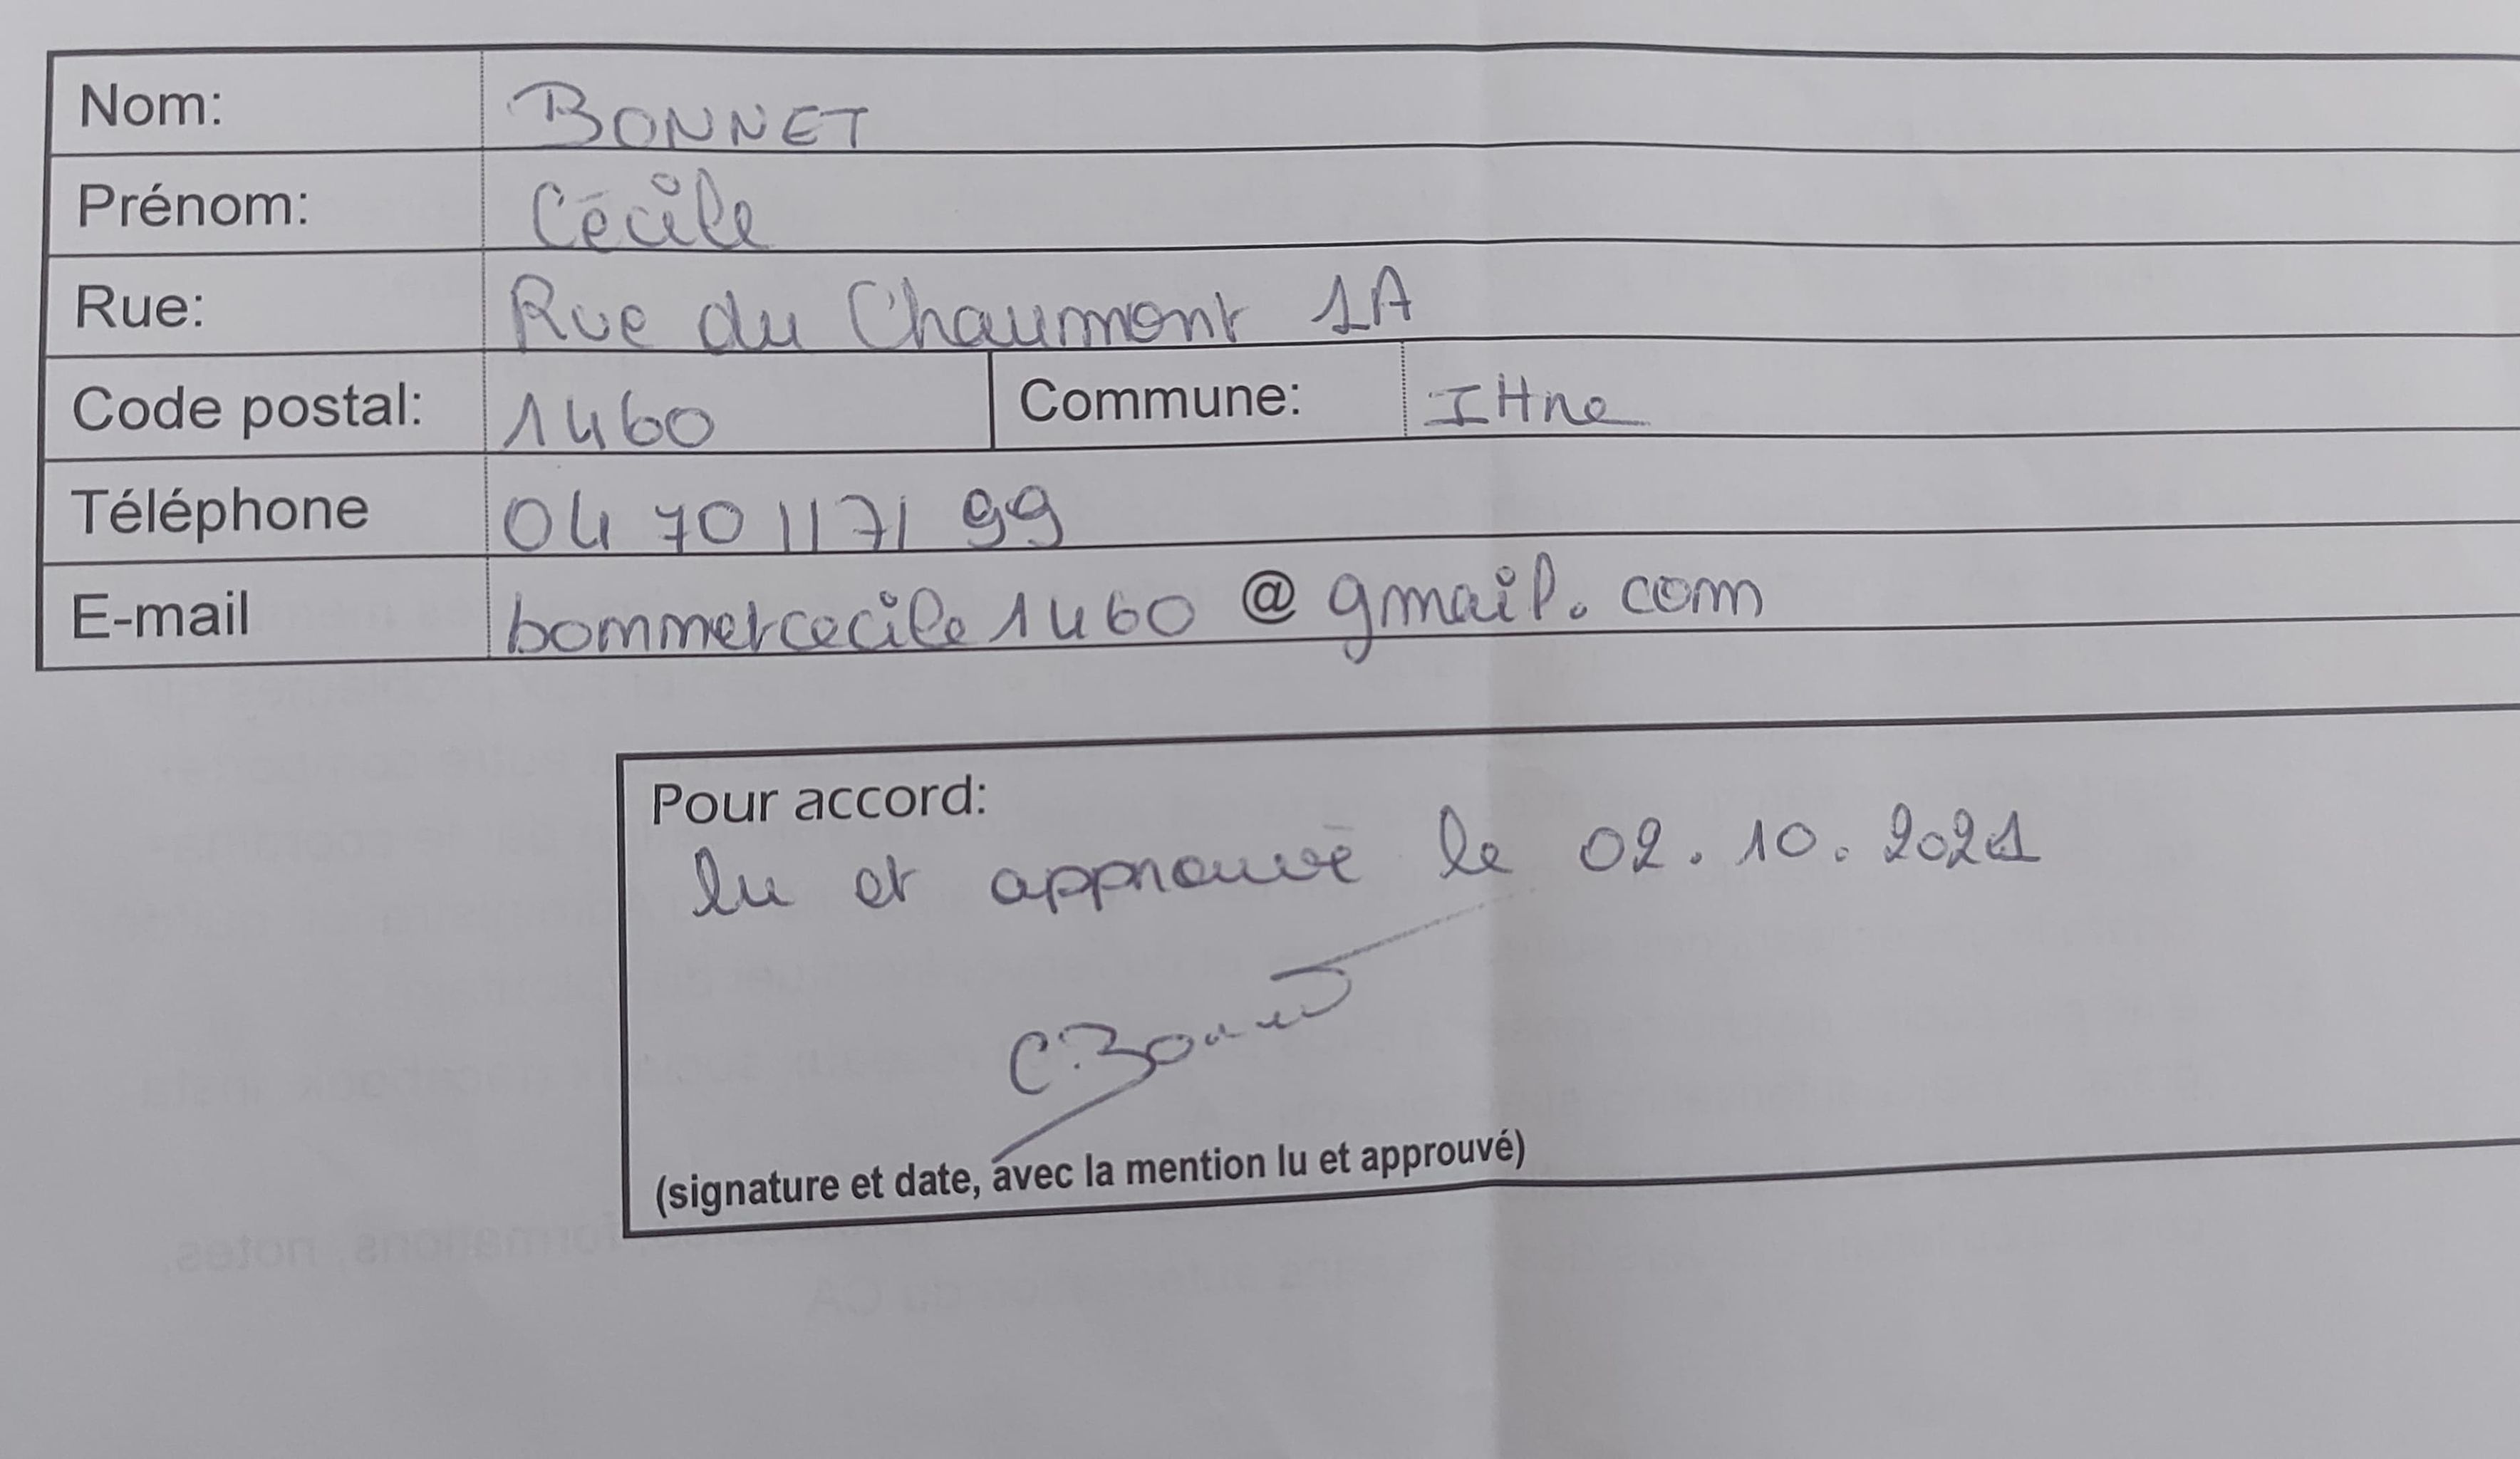 Nom: BONNET
Prénom: Cécile
Rue: Rue du Chaumont 1A
Code postal: 1460 Commune: IHne
Téléphone 04 70 11 71 99
E-mail bonnetcecile1460 @ gmail. com
Pour accord:
lu et approuvé le 02. 10. 2021
C. Bonnet
(signature et date, avec la mention lu et approuvé)